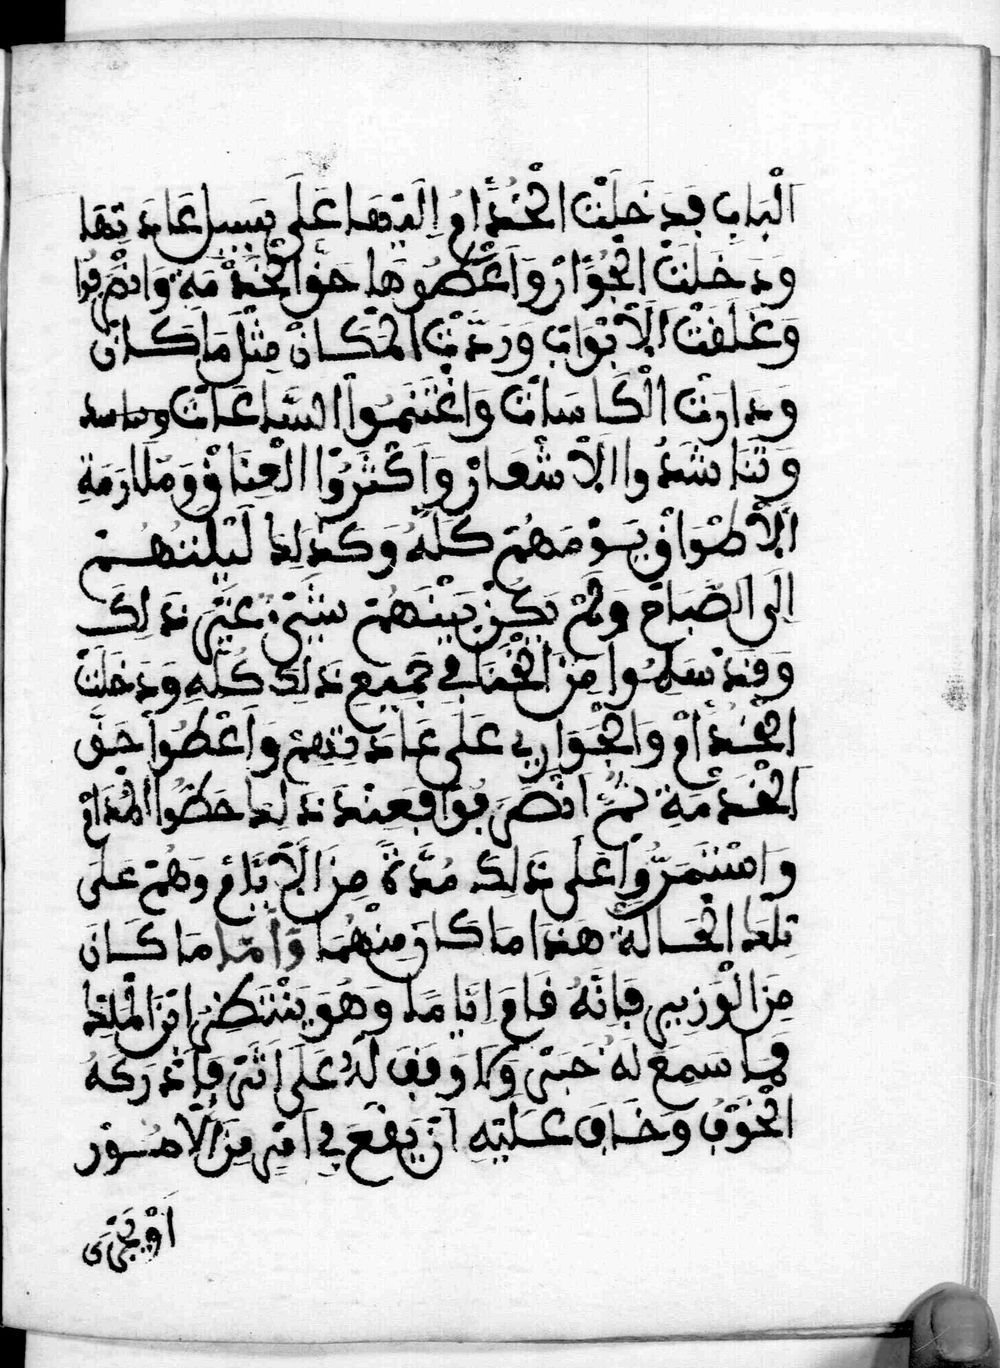 الْبَابِ فَدَخَلَتْ الْخُدَّامُ إِلَيْهَا عَلَى سَبِيلِ عَادَتِهَا
وَدَخَلَتْ الْجُوَّارْ وَاَعْطُوهَا حَقَّ الْخِدْمَةِ وَانْصَرَفُوا
وَغَلَقَتْ الْاَبْوَابَ وَرَدَّتْ الْمَكَانْ مِثْلَ مَا كَانْ
وَدَارَتْ الْكَاسَاتْ وَاغْتَنَمُوا السَّاعَاتْ
وَتَنَاشَدُوا الْاَشْعَارْ وَاَكْثَرُوا الْعِنَاقْ وَمُلَازَمَةِ
الْاَطْوَاقْ يَوْمَهُمْ كُلَّهُ وَكَذَلِكَ لَيْلَتَهُمْ
اِلَى الصَّبَاحْ وَلَمْ يَكُنْ بَيْنَهُمْ شَيْئٌ غَيْرَ ذَلِكَ
وَقَدْ سَلِمُوا مِنَ الْخَنَا فِي جَمِيعِ ذَلِكَ كُلِّهِ وَدَخَلَتْ
الْخُدَّامْ وَالْجَوَارِي عَلَى عَادَتِهِمْ وَاَعْطُوا حَقَّ
الْخِدْمَةِ ثُمَّ انْصَرَفُوا فَعِنْدَ ذَلِكَ حَطُّوا الْمُدَامْ
وَاسْتَمَرُّوا عَلَى ذَلِكَ مُدَّةً مِنَ الْاَيَّامْ وَهُمْ عَلَى
تِلْكَ الْحَالَةْ هَذَا مَا كَانَ مِنْهُمَا وَأَمَّا مَا كَانَ
مِنَ الْوَزِيرِ فَاِنَّهُ قَامَ اَيَّامًا وَهُوَ يَنْتَظِرُ ابْنَ الْمَلِكْ
فَمَا سَمِعَ لَهُ خَبَرْ وَلَا وَقَفَ لَهُ عَلَى اَثَرْ فَاَدْرَكَهُ
الْخَوْفُ وَخَافَ عَلَيْهِ اَنْ يَقَعَ فِي اَمْرٍ مِنَ الْاُمُورْ
اَوْ يَجْرَى